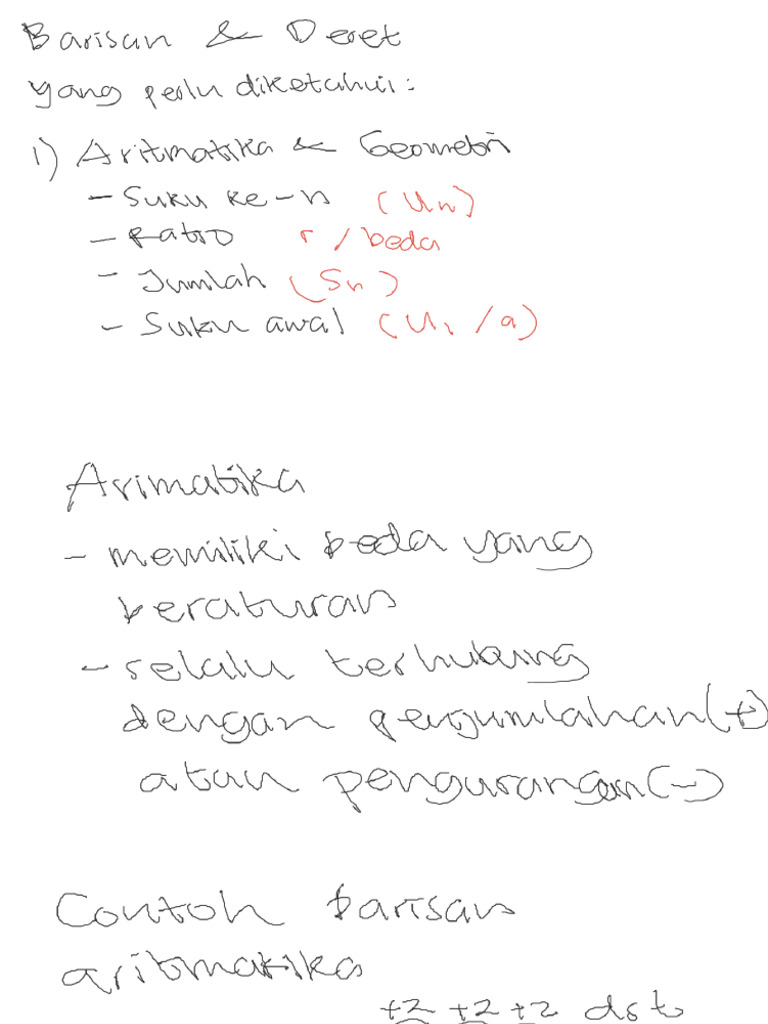 Barisan & Deret
yang perlu diketahui:
1) Aritmatika & Geometri
- Suku ke-n (Un)
- Ratio r / beda
- Jumlah (Sn)
- Suku awal (U1 /a)
Arimatika
- memiliki beda yang
beraturan
- selalu terhubung
dengan pengumlahan(+)
atau pengurangan(-)
Contoh barisan
aritmatika
+2 +2 +2 dst